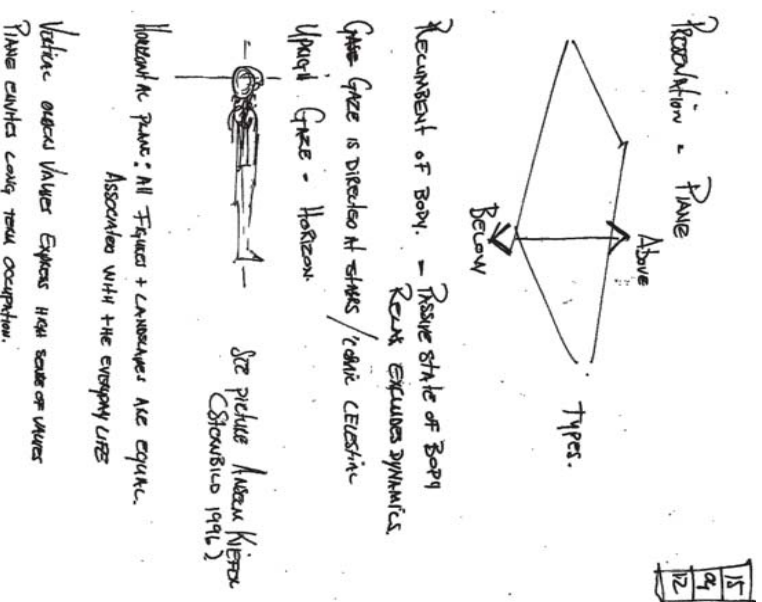 15
04
12
PROSTRATION - PLANE
ABOVE
BELOW
TYPES.
RECUMBENT OF BODY. - PASSIVE STATE OF BODY
RELAX EXCLUDES DYNAMICS.
GAZE IS DIRECTED AT STARS / COMIC CELESTIAL
UPRIGHT GAZE - HORIZON.
SEE PICTURE ANSELM KIEFER
(STERNBILD 1996)
HORIZONTAL PLANE: ALL FIGURES + LANDSCAPES ARE EQUAL.
ASSOCIATED WITH THE EVERYDAY LIFE
VERTICAL ORDERS VALUES EXPRESS HIGH SENSE OF VALUES
PLANE INVITES LONG TERM OCCUPATION.